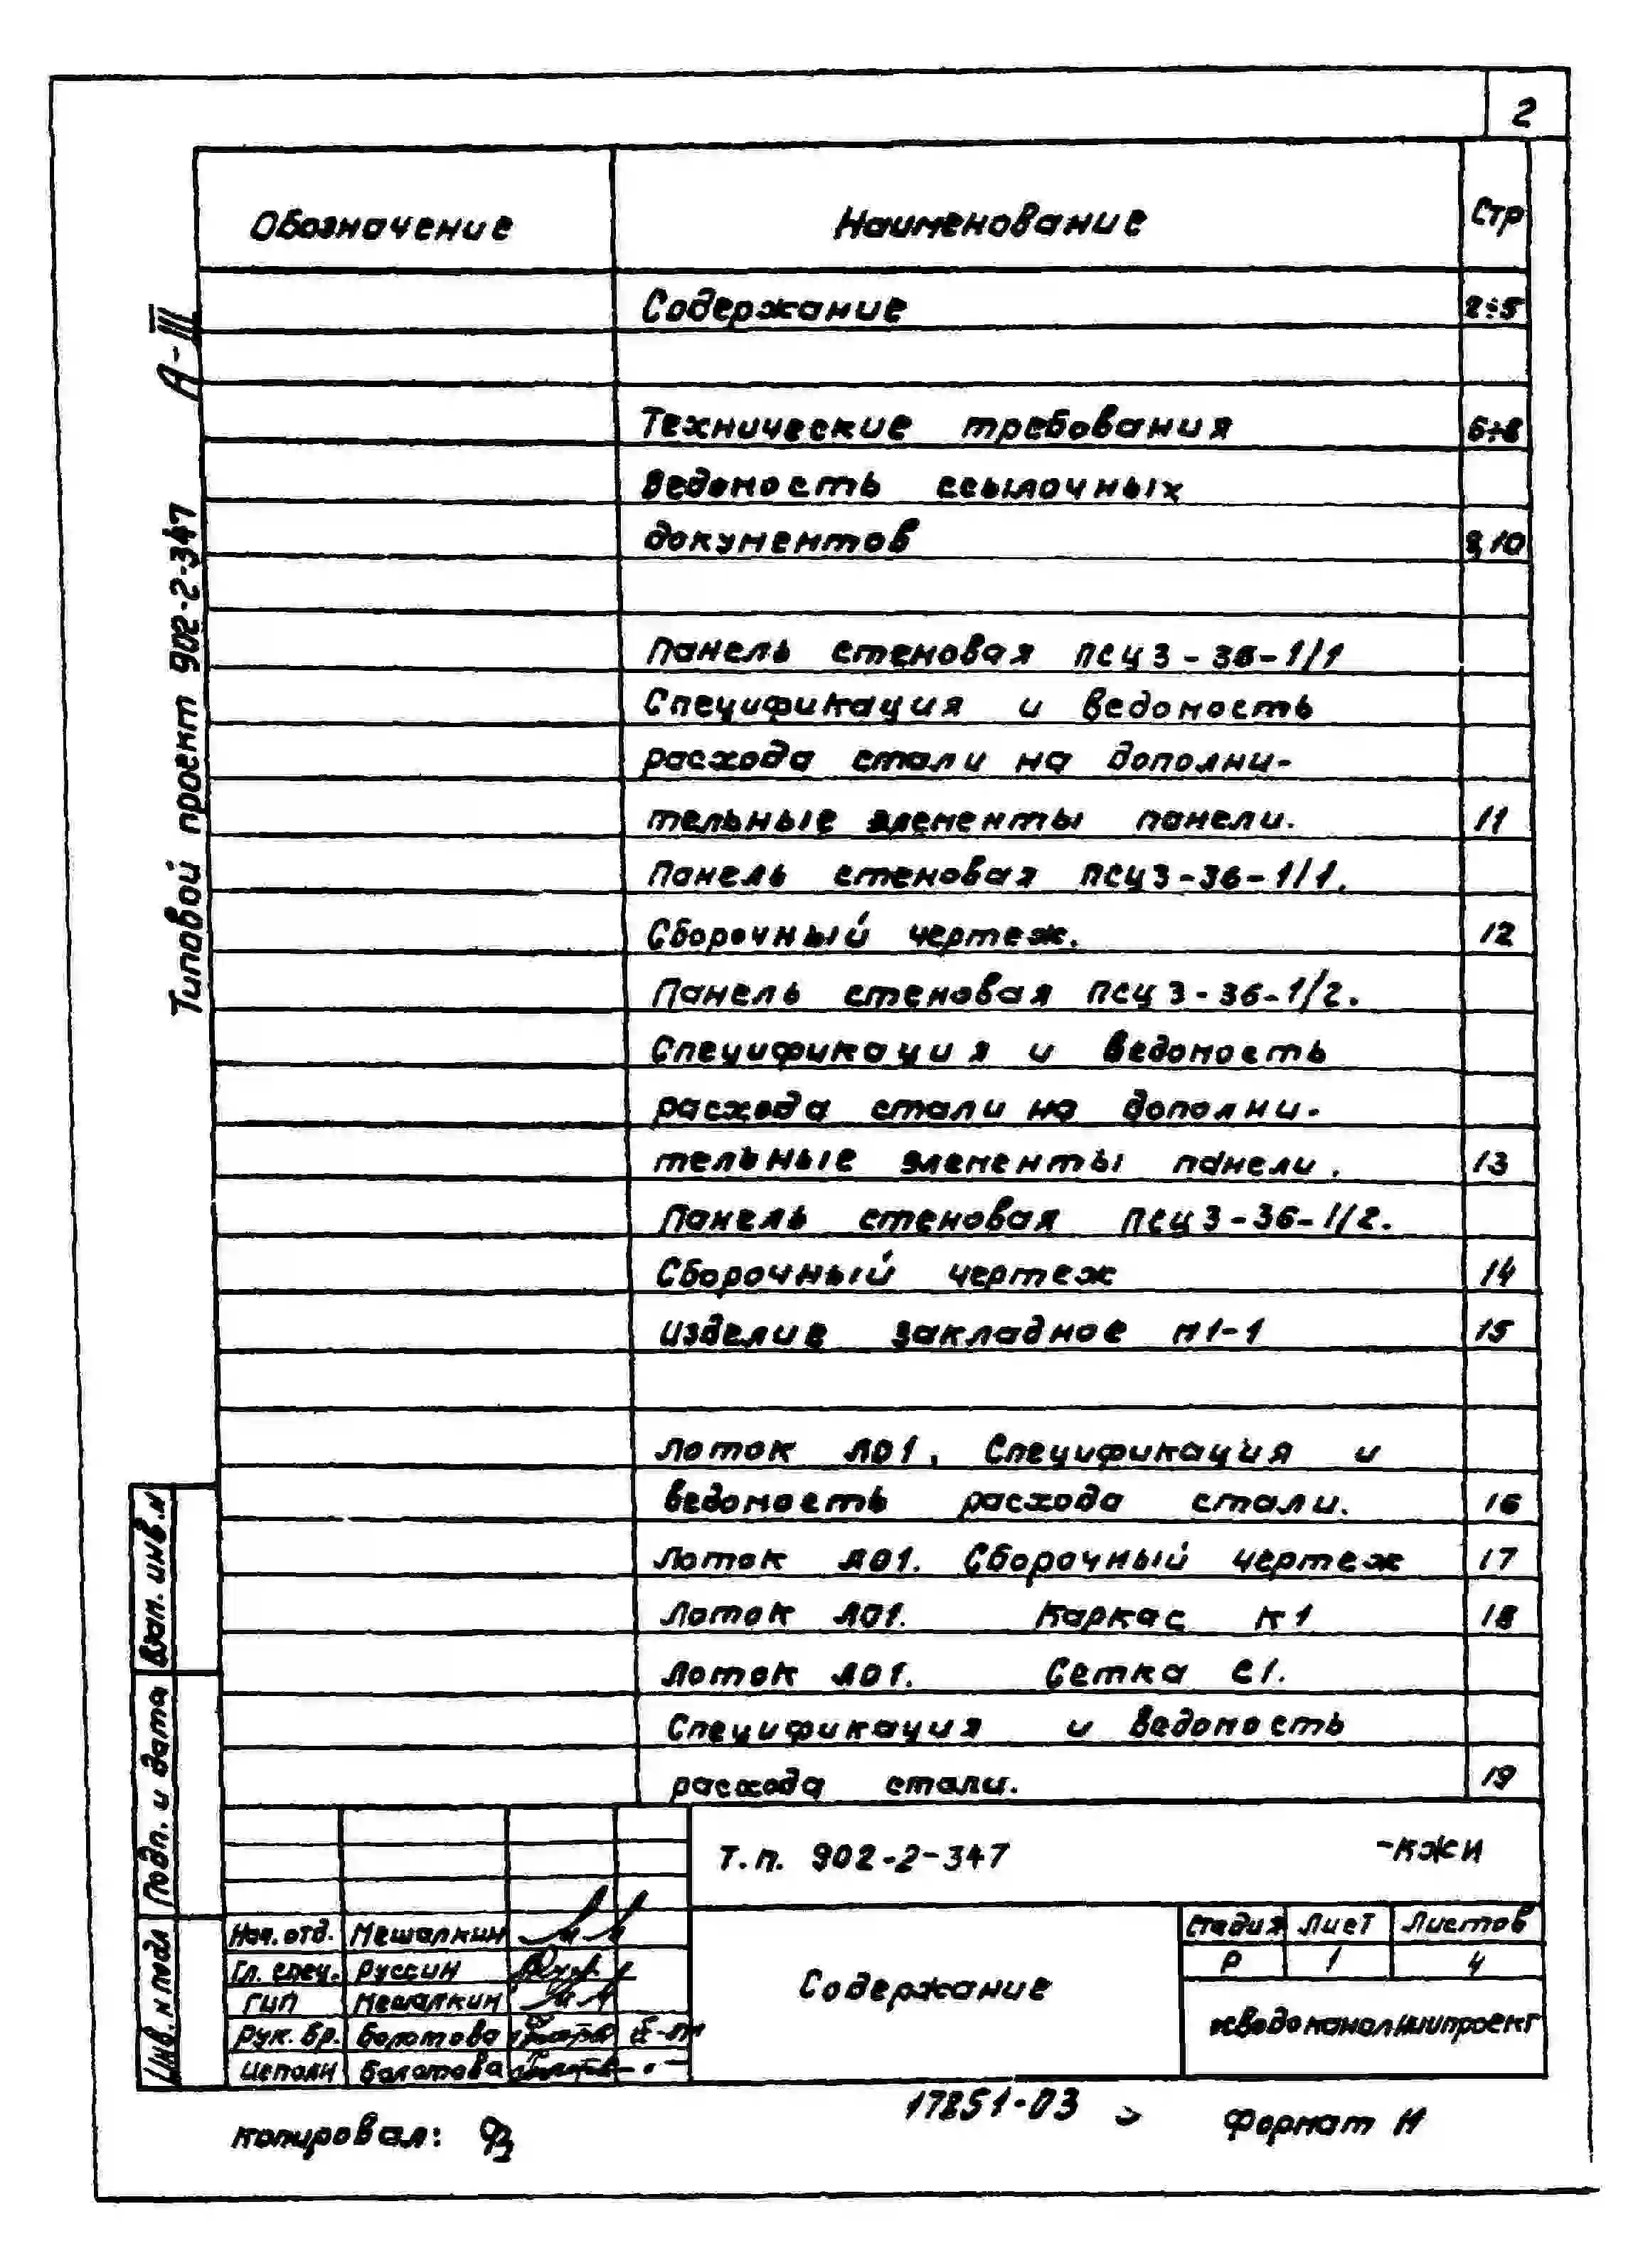 2
Обозначение Наименование Стр
Содержание 2÷5
Технические требования 6÷8
Ведомость ссылочных
документов 9,10
Панель стеновая ПСЦ3-36-1/1
Спецификация и ведомость
расхода стали на дополни-
тельные элементы панели. 11
Панель стеновая ПСЦ3-36-1/1.
Сборочный чертеж. 12
Панель стеновая ПСЦ3-36-1/2.
Спецификация и ведомость
расхода стали на дополни-
тельные элементы панели. 13
Панель стеновая ПСЦ3-36-1/2.
Сборочный чертеж 14
Изделие закладное М1-1 15
Лоток Л01. Спецификация и
ведомость расхода стали. 16
Лоток Л01. Сборочный чертеж 17
Лоток Л01. Каркас К1 18
Лоток Л01. Сетка С1.
Спецификация и ведомость
расхода стали. 19
Типовой проект 902-2-347 А-III
Взам. инв. н
Подп. и дата
Инв. н подл
Т.п. 902-2-347 -КЖИ
Нач. отд. Мешалкин
Гл. спец. Руссин
ГИП Мешалкин
Рук. бр. Болотова
Исполн Болотова
Содержание
Стадия Лист Листов
Р 1 4
17851-03
Копировал:
Формат 11